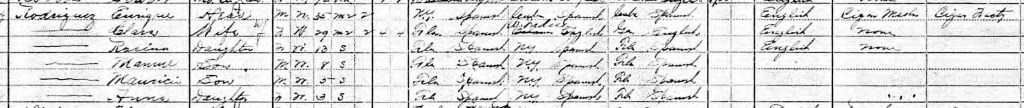 Rodriguez Enrique Head M W 35 M 2 2 NY Spanish Cuba Spanish Cuba Spanish English Cigar Maker Cigar Facty
—— Clara Wife F W 29 M 2 4 4 Fla Spanish English Geo English English none
—— Daughter F W 13 S Fla Spanish NY Spanish Fla Spanish English none
—— Manuel Son M W 8 S Fla Spanish NY Spanish Fla Spanish
—— Mauricio Son M W 5 S Fla Spanish NY Spanish Fla Spanish
—— Anna Daughter F W 3 S Fla Spanish NY Spanish Fla Spanish